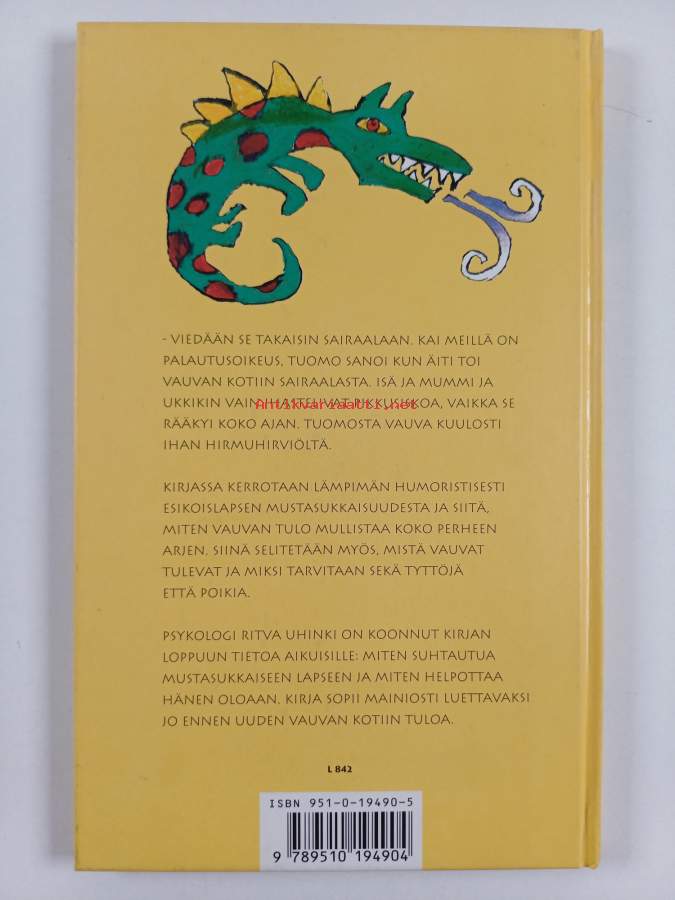 - VIEDÄÄN SE TAKAISIN SAIRAALAAN. KAI MEILLÄ ON
PALAUTUSOIKEUS, TUOMO SANOI KUN ÄITI TOI
VAUVAN KOTIIN SAIRAALASTA. ISÄ JA MUMMI JA
UKKIKIN VAIN IHASTELIVAT PIKKUSISKOA, VAIKKA SE
Antikvariaatti.net
RÄÄKYI KOKO AJAN. TUOMOSTA VAUVA KUULOSTI
IHAN HIRMUHIRVIÖLTÄ.
KIRJASSA KERROTAAN LÄMPIMÄN HUMORISTISESTI
ESIKOISLAPSEN MUSTASUKKAISUUDESTA JA SIITÄ,
MITEN VAUVAN TULO MULLISTAA KOKO PERHEEN
ARJEN. SIINÄ SELITETÄÄN MYÖS, MISTÄ VAUVAT
TULEVAT JA MIKSI TARVITAAN SEKÄ TYTTÖJÄ
ETTÄ POIKIA.
PSYKOLOGI RITVA UHINKI ON KOONNUT KIRJAN
LOPPUUN TIETOA AIKUISILLE: MITEN SUHTAUTUA
MUSTASUKKAISEEN LAPSEEN JA MITEN HELPOTTAA
HÄNEN OLOAAN. KIRJA SOPII MAINIOSTI LUETTAVAKSI
JO ENNEN UUDEN VAUVAN KOTIIN TULOA.
L 842
ISBN 951-0-19490-5
9 789510 194904